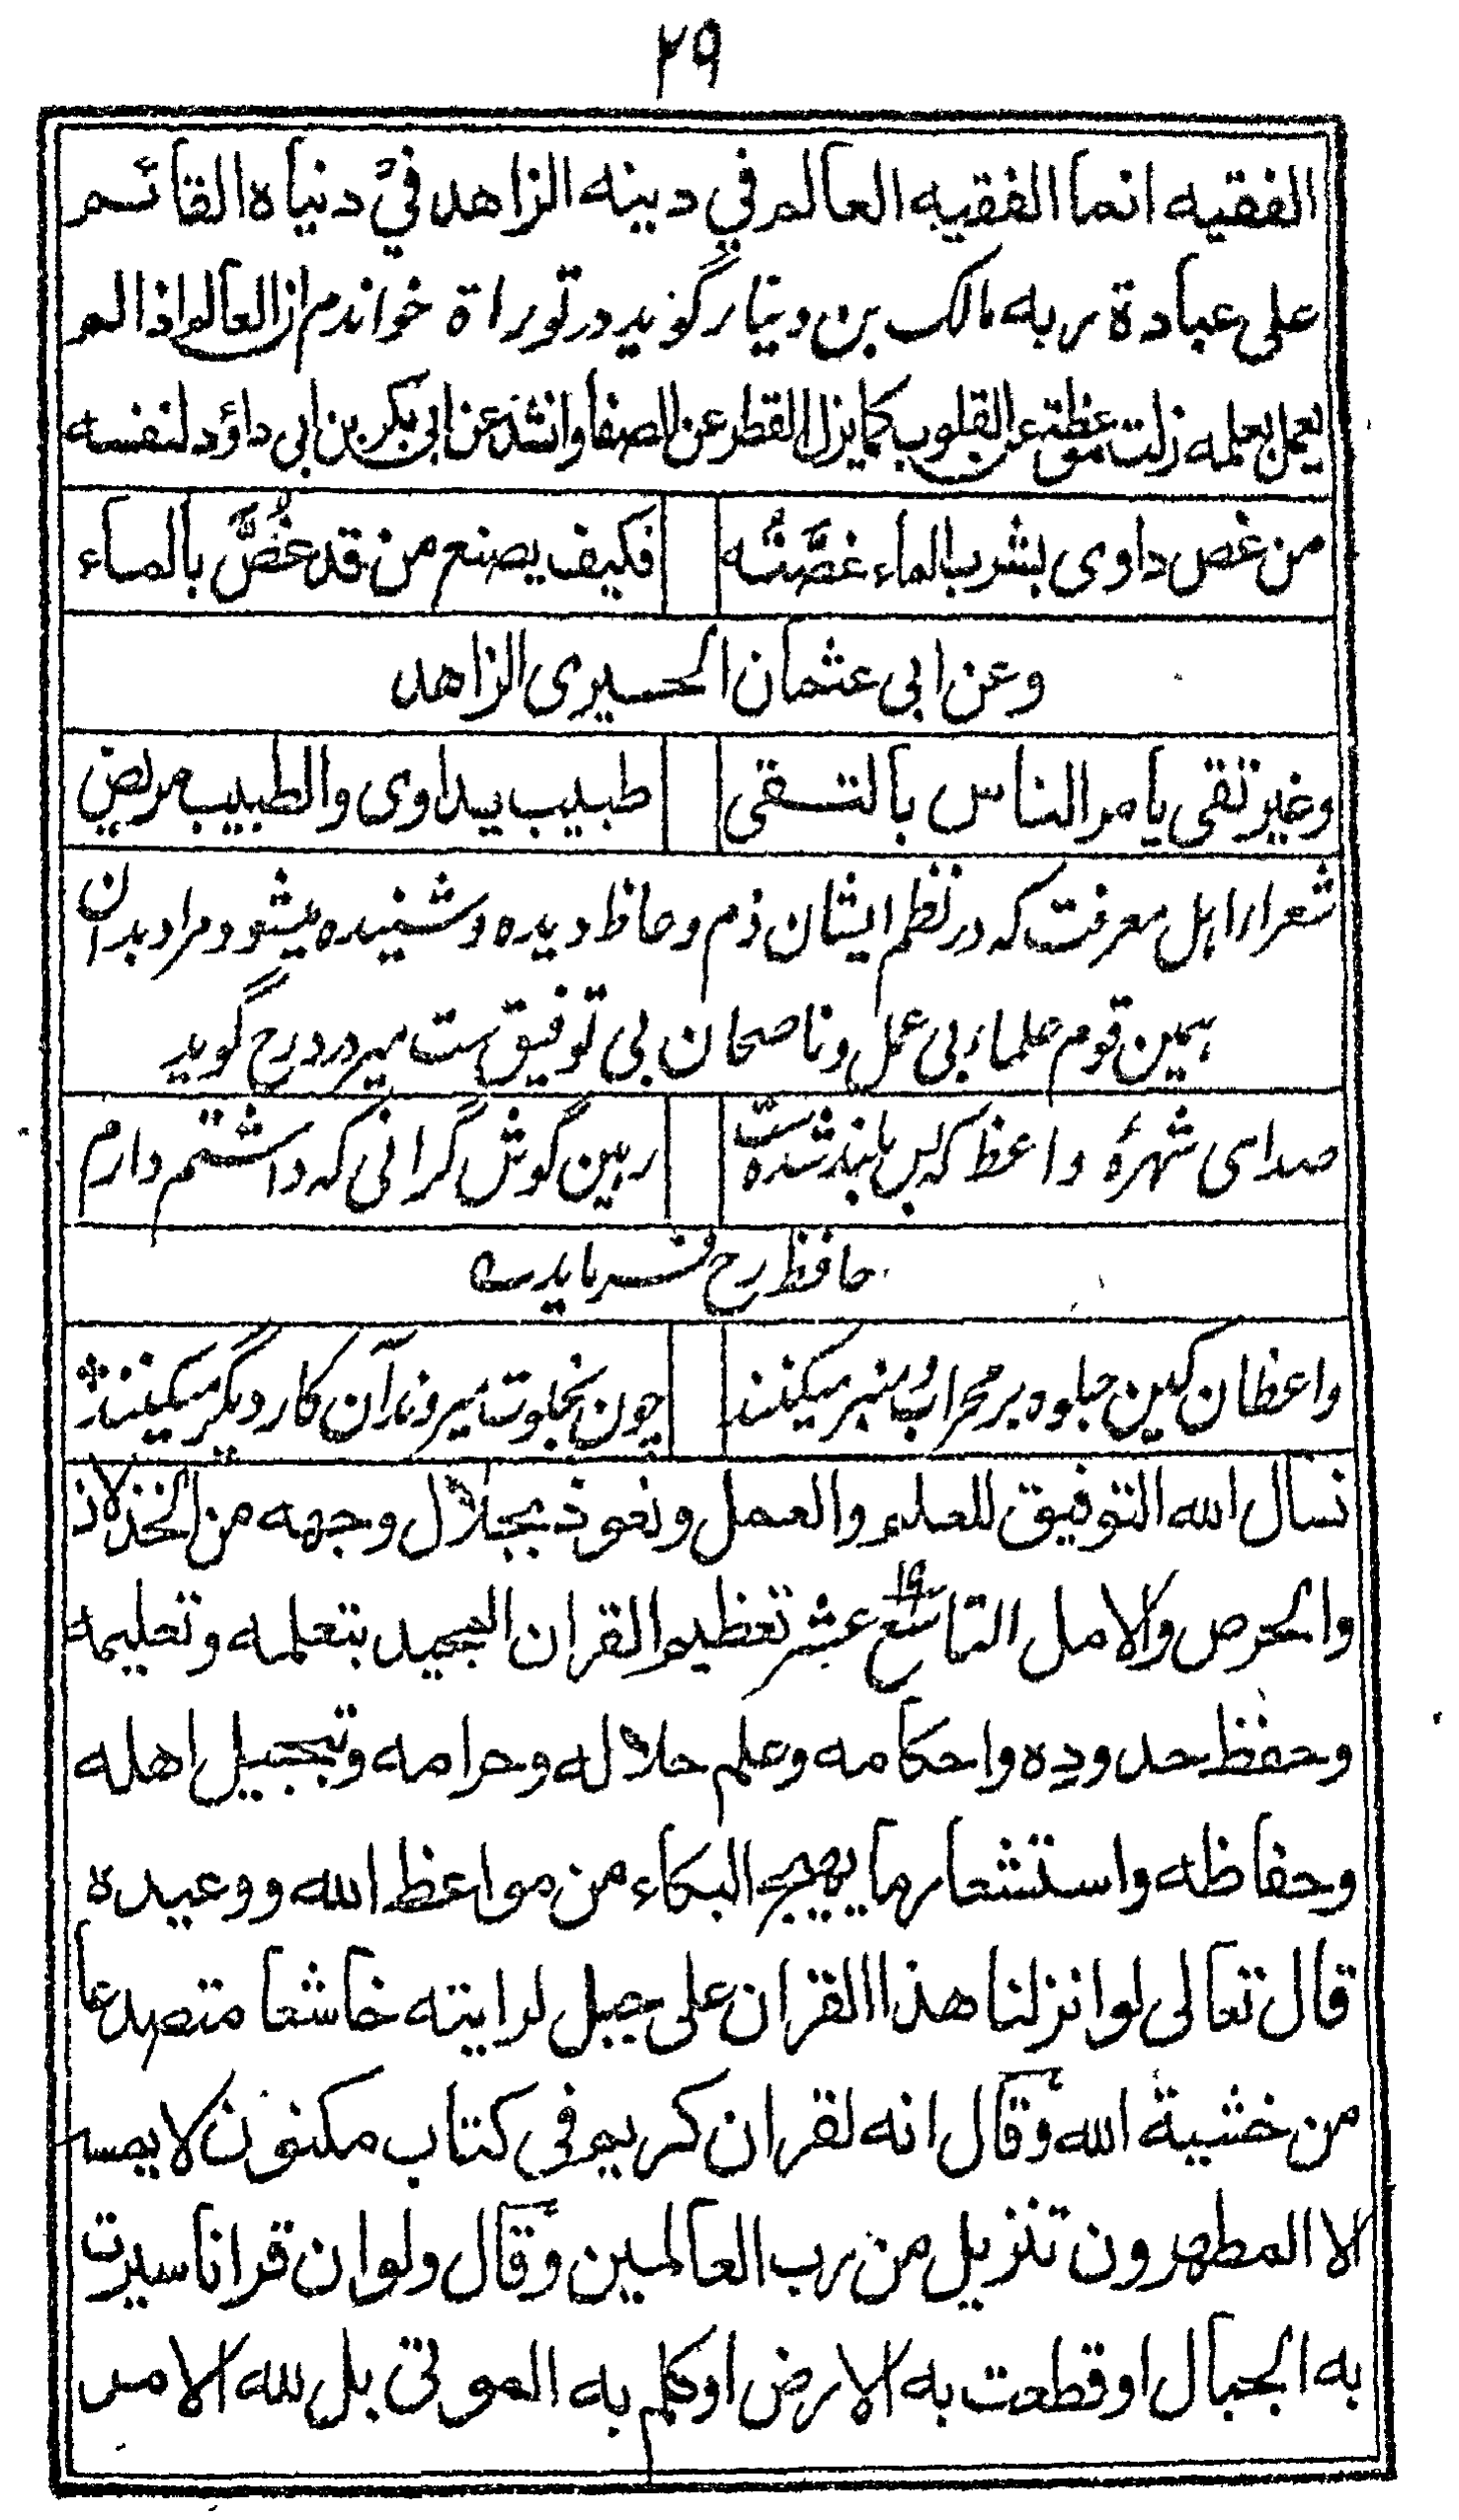 ۲۹
الفقيه انما الفقيه العالم في دينه الزاهد في دنياه القائم
على عبادة ربه مالک بن دینار گوید در توراة خواندم ان العالم اذا لم
يعمل بعلمه زلت موعظته عن القلوب كما يزل القطر عن الصفا وانشد عن ابى بكر بن ابى داؤد لنفسه
من غص داوى بشرب الماء غصّتُه فكيف يصنع من قد غُصَّ بالماء
وعن ابى عثمان الحسيرى الزاهد
وغير تقى يا مر الناس بالتقى طبيب يداوى والطبيب مريض
شعرا را اہل معرفت کہ در نظم ایشان ذم وحاظ دیدہ و شنیدہ میشود مراد بدان
ہمین قوم علماء بی عمل و ناصحان بی توفیق ست میر درد رح گوید
صدای شهرهٔ واعظ کہ بس بلند شدہ ست رہین گوش گرانی کہ داشتم دارم
حافظ رح فرماید
واعظان کین جلوہ بر محراب و منبر میکنند چون بخلوت میروند آن کار دیگر میکنند
نسال الله التوفيق للعلم والعمل ونعوذ بجلال وجهه من الخذلان
والحرص والامل التاسع عشر ۱۹ تعظيم القران المجيد بتعلمه وتعليمه
وحفظ حدوده واحكامه وعلم حلاله وحرامه وتبجيل اهله
وحفاظه واستشعار ما يهيج البكاء من مواعظ الله ووعيده
قال تعالى لو انزلنا هذا القران على جبل لرايته خاشعا متصدعا
من خشية الله وقال انه لقران كريم في كتاب مكنون لا يمسه
الا المطهرون تنزيل من رب العالمين وقال ولو ان قرانا سيرت
به الجبال او قطعت به الارض او كلم به الموتى بل لله الامر